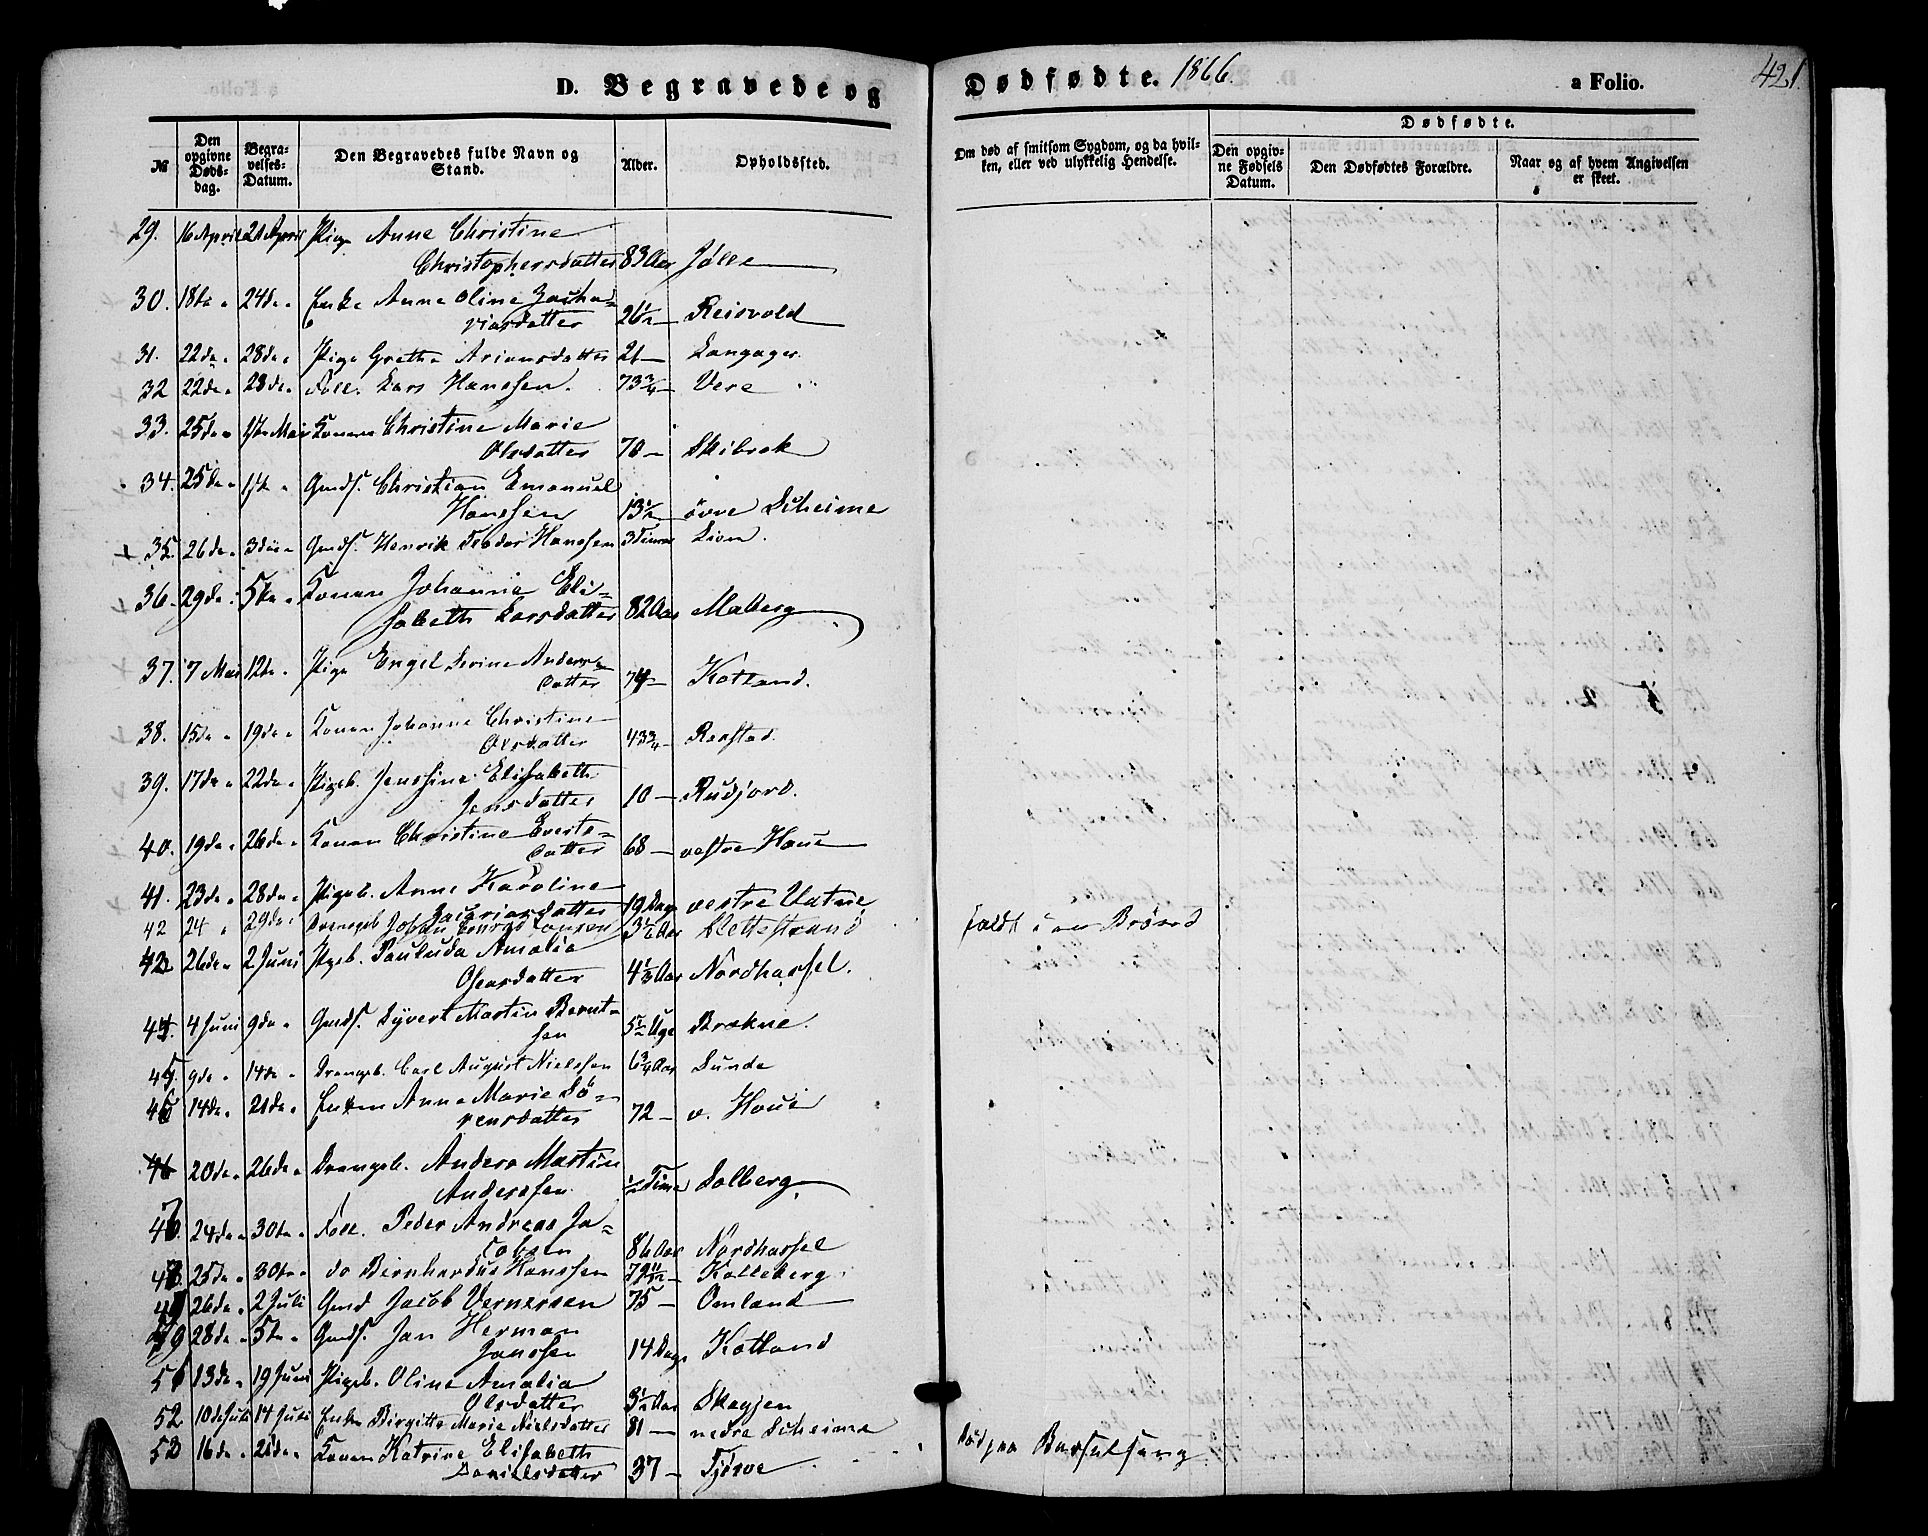 D. Begravede og Dødfødte. 1866. a Folio. 421.
№ Den opgivne Dødsdag. Begravelses-Datum. Den Begravedes fulde Navn og Stand. Alder. Opholdssted. Om død af smitsom Sygdom, og da hvilken, eller ved ulykkelig Hendelse.
Dødfødte.
Den opgivne Fødsels Datum. Den Dødfødtes Forældre. Naar og af hvem Angivelsen er skeet.
29. 16 April 21 April Pige Anne Christine
Christophersdatter 83 Aar Jølle
30. 18de 24de Enke Anne Oline Zacha-
riasdatter 26½ Reisvold
31. 22de 28de Pige Grethe Ariansdatter 21 Langager
32 22de 28de Foll. Lars Hanssen. 73¾ Vere
33. 25de 1ste Mai Konen Christine Marie
Olsdatter 70 Skibrok
34. 25de 1ste Gmds. Christian Emanuel
Hanssen 13½ øvre Scheime
35. 26de 3die Gmds. Henrik Teodor Hanssen 3 Timer Lien
36. 29de 5te Konen Johanne Eli-
sabeth Larsdatter 82 Aar Maberg
37. 7 Mai 12te Pige Engel Serine Anders-
datter 74 Kotland.
38. 15de 19de Konen Johanne Christine
Olsdatter 43¾ Raastad
39. 17de 22de Pigeb. Jenssine Elisabeth
Jensdatter 10 Rudjord.
40. 19de 26de Konen Christine Everts-
datter 68 vestre Haue
41. 23de 28de Pigeb. Anne Karoline
Zacariasdatter 19 Dage vestre Vatne
42 24 29de Drengeb. Johan Conrad Hansen 3½ Aar Slettestrand faldt i en Brønd
43 26de 2 Juni Pigeb. Pauluda Amalia
Osensdatter 4⅓ Aar Nordhassel.
44. 4 Juni 9de Gmds. Syvert Martin Bernt-
sen 5½ Uge Brækne.
45. 9de 14de Drengeb. Carl August Nielssen 6¾ Aar Lunde
46 14de 21de Enken Anne Marie Sø-
rensdatter 72 v. Haue
46 20de 26de Drengeb. Anders Martin
Anderssen ½ Time Solberg
47 24de 30te Foll. Peder Andreas Ja-
cobsen 86 Aar Nordhassel
48 25de 30te do Bernhardus Hanssen 79 11/12 Kalleberg
49 26de 2 Juli Gmd Jacob Vernersen 75 Omland
28de 5te Gmds. Jan Herman
Janssen 14 Dage Kotland
51 13de 19 Juni Pigeb. Oline Amalia
Olsdatter 3½ Aar Skagjen
52 10de Juli 14 Juli Enken Birgitte Marie Nielsdatter 81 nedre Scheime
53 16de 21de Konen Katrine Elisabeth
Danielsdatter 37 Tjørve død paa Barselseng